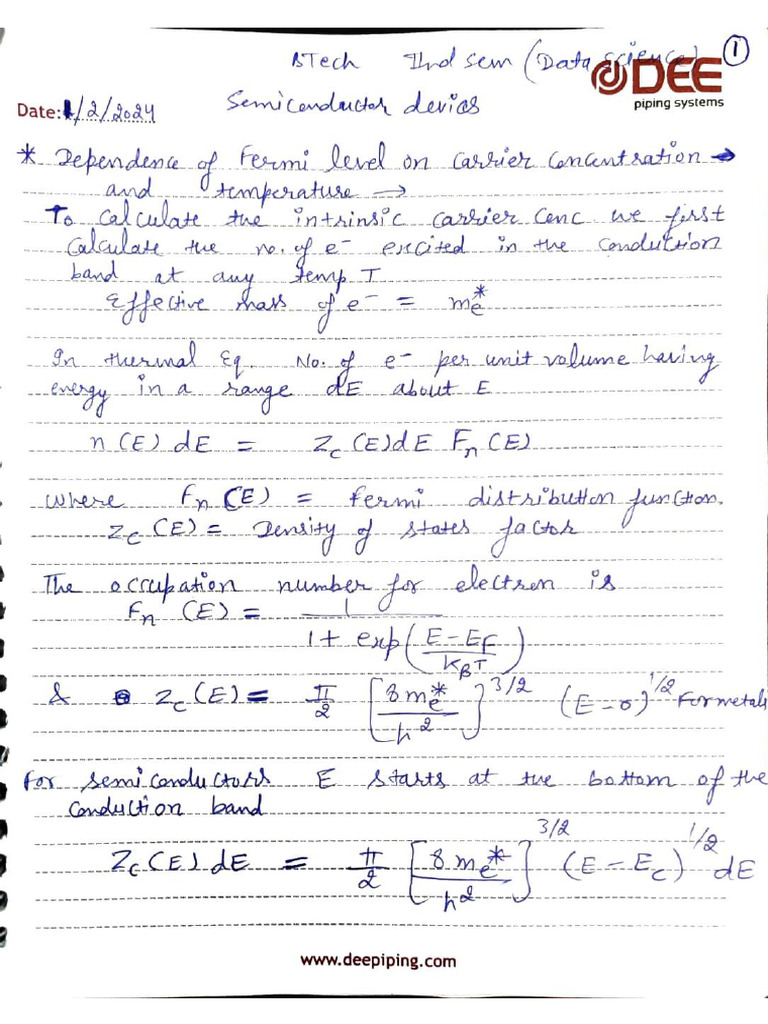 BTech IInd sem (Data science) 1
DEE
piping systems
Date: 1/2/2024 Semiconductor devices
* Dependence of Fermi level on carrier concentration →
and temperature →
To calculate the intrinsic carrier conc we first
calculate the no. of e⁻ excited in the conduction
band at any temp T
Effective mass of e⁻ = mₑ*
In thermal Eq. No. of e⁻ per unit volume having
energy in a range dE about E
n(E) dE = Z_c(E)dE F_n(E)
where F_n(E) = Fermi distribution function.
Z_c(E) = Density of states factor
The occupation number for electron is
F_n(E) = 1 / (1 + exp((E-E_F)/(K_BT)))
& Z_c(E) = π/2 [8mₑ*/h²]^3/2 (E-0)^1/2 For metals
For semiconductors E starts at the bottom of the
conduction band
Z_c(E) dE = π/2 [8mₑ*/h²]^3/2 (E-E_c)^1/2 dE
www.deepiping.com